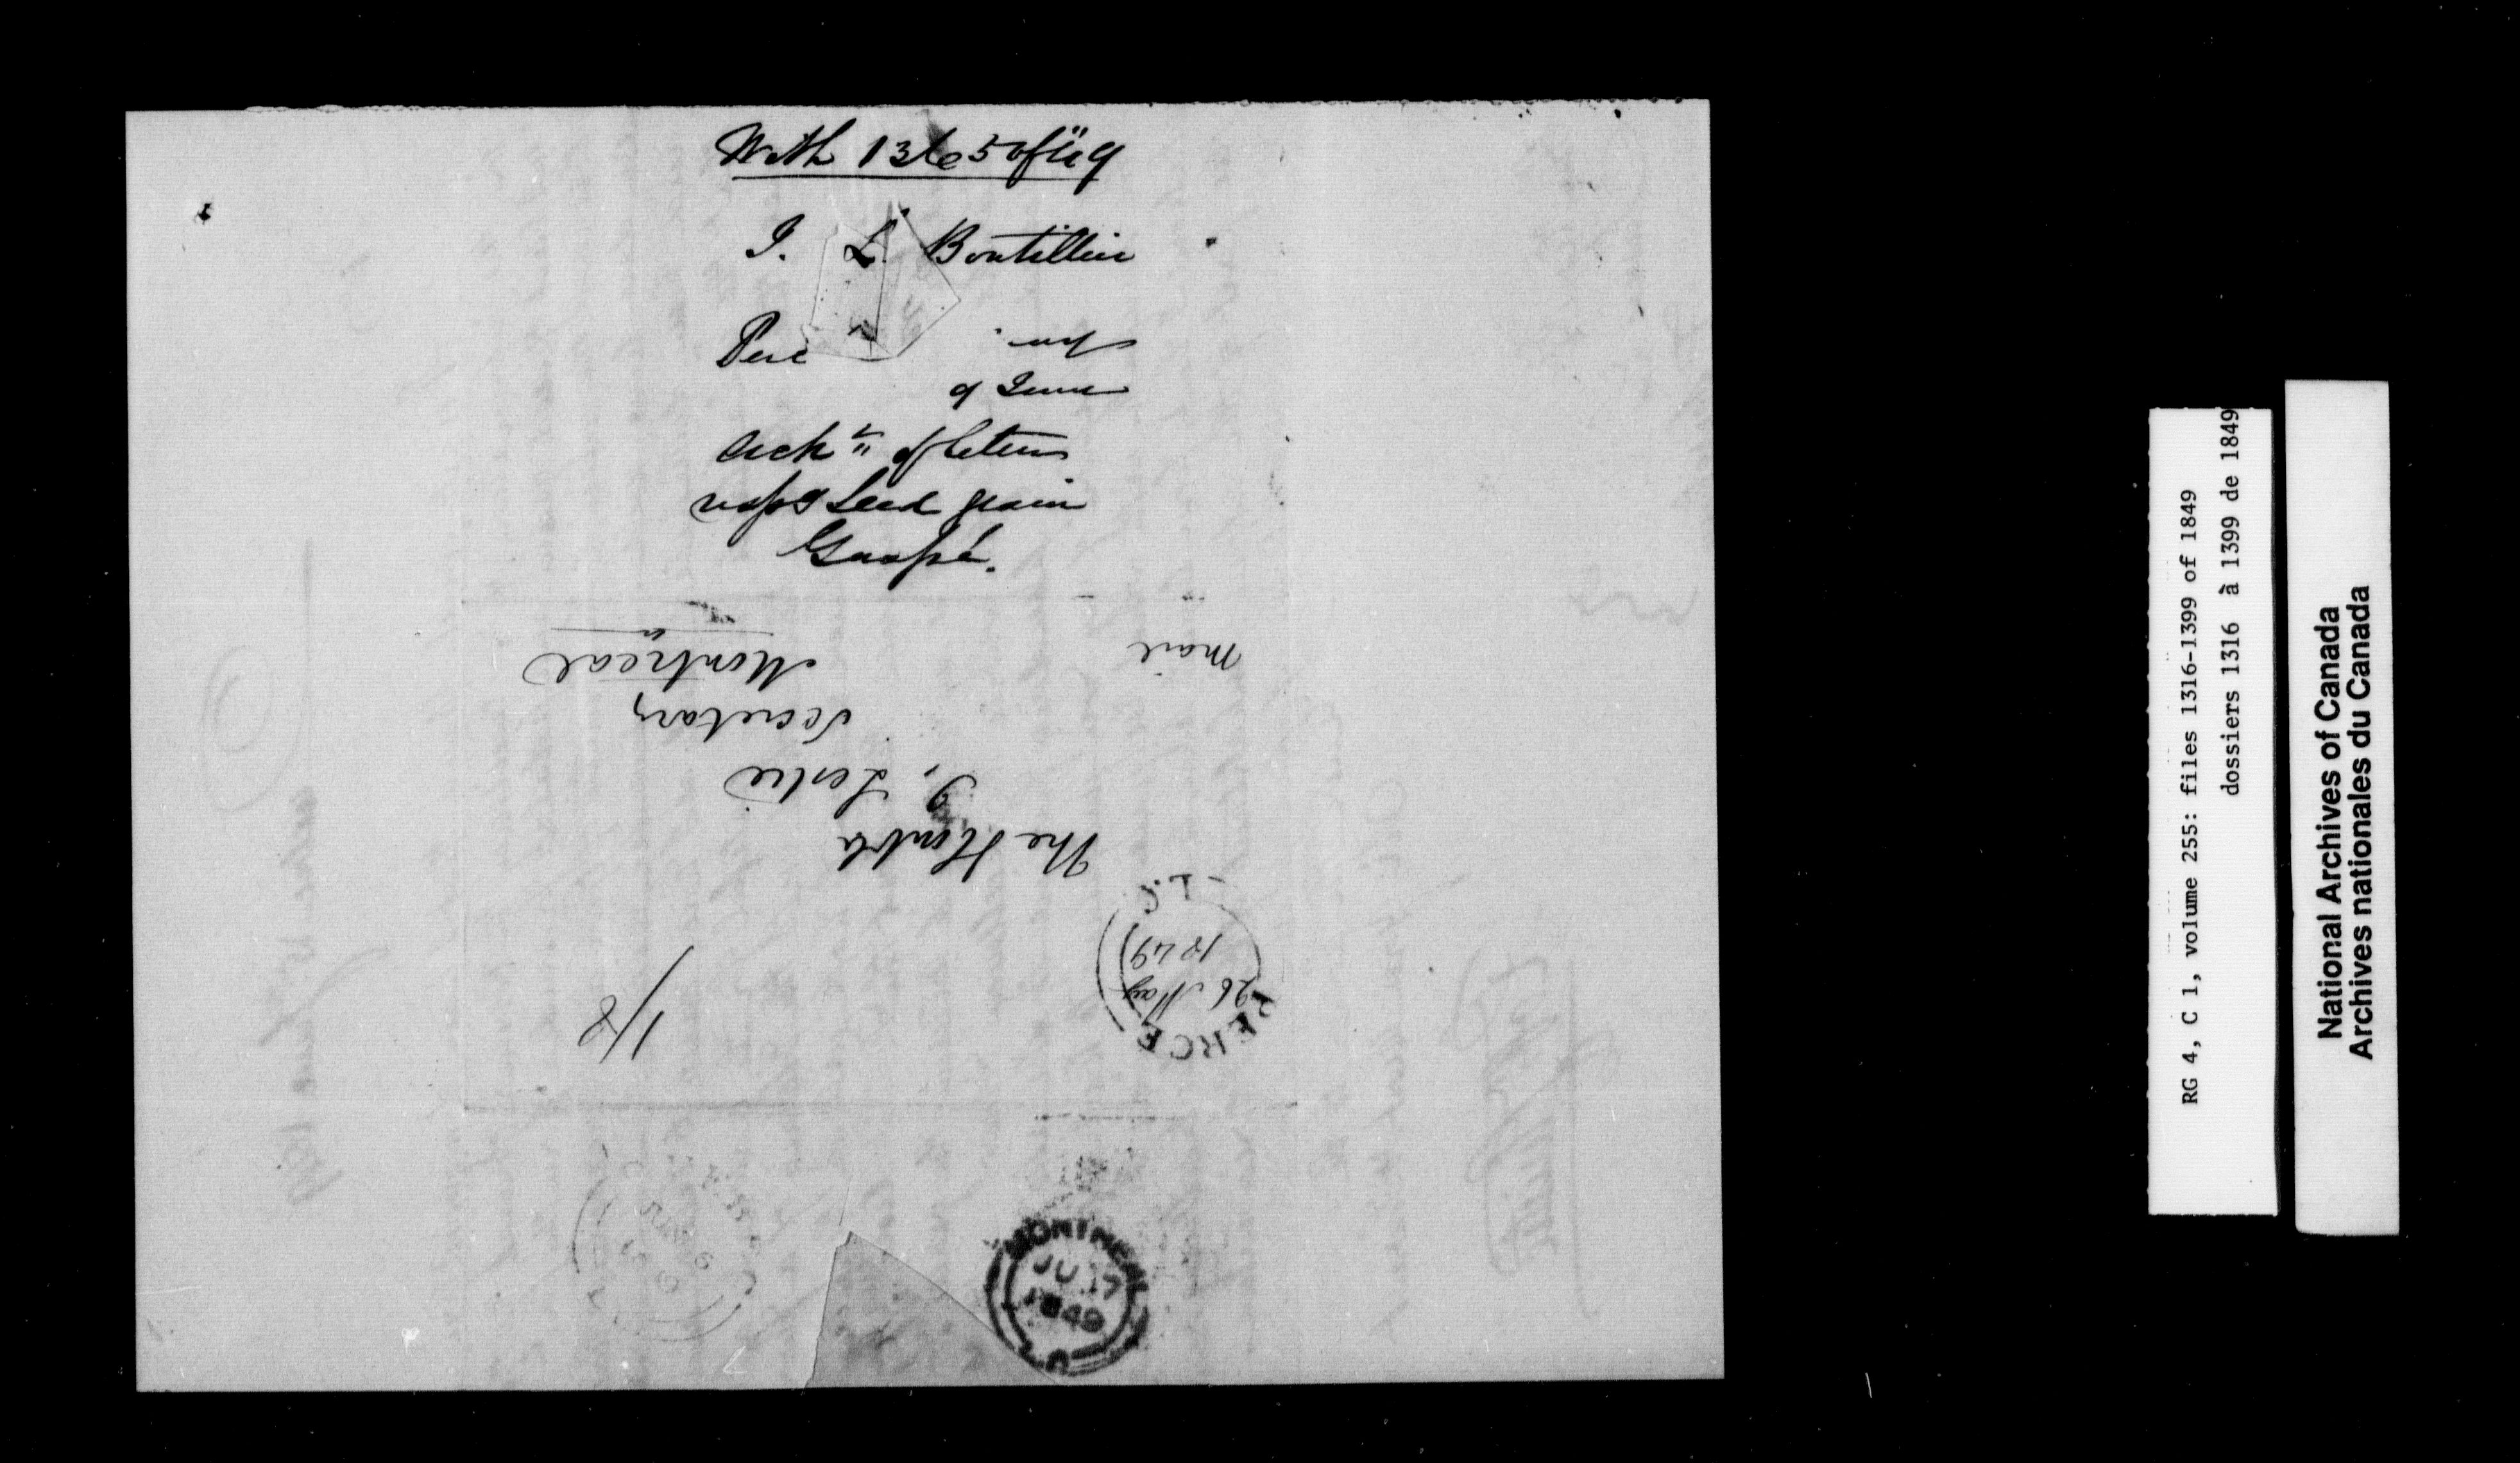 With 1365 of 49
I. L. Boutillier
Percé
9 June
Ack n of letter
resp g Seed grain
Gaspé.
Mail
The Honble
J. Leslie
Secretary
Montreal
1/8
PERCE
26 May
1849
L.C.
MONTREAL
JU 17
1849
L.C.
RG 4, C 1, volume 255: files 1316-1399 of 1849
dossiers 1316 à 1399 de 1849
National Archives of Canada
Archives nationales du Canada